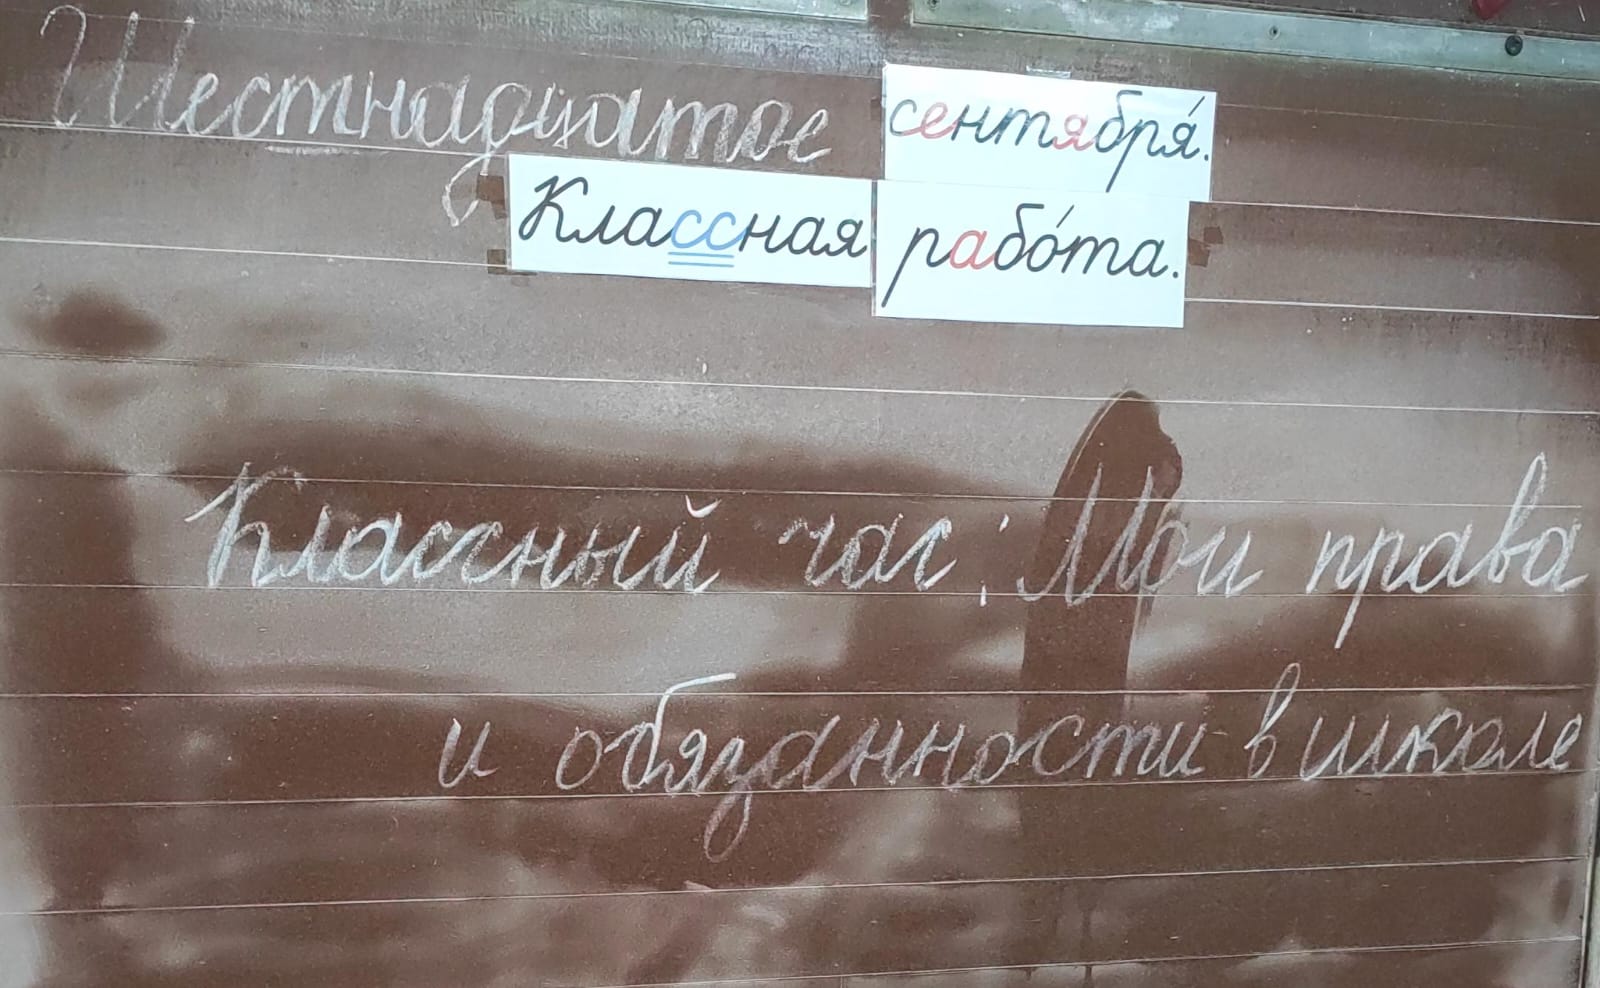 Шестнадцатое сентября́.
Классная рабо́та.
Классный час: Мои права
и обязанности в школе